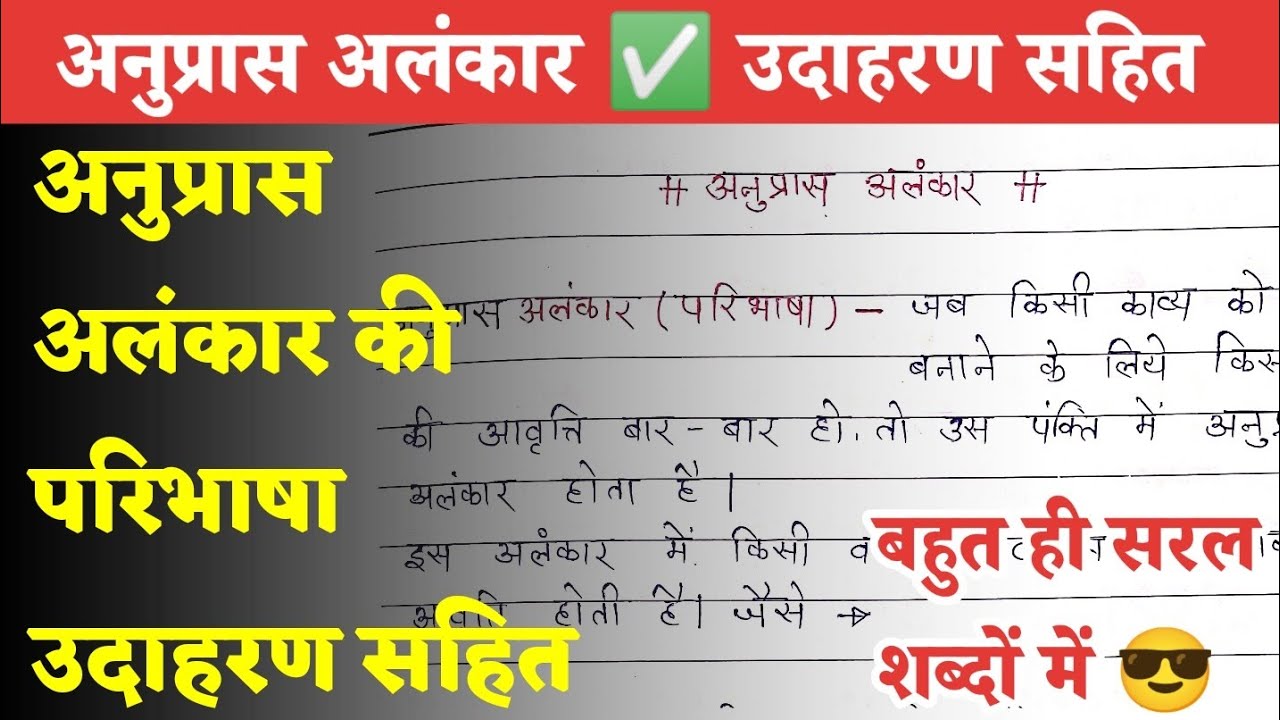 अनुप्रास अलंकार ✅ उदाहरण सहित
अनुप्रास
अलंकार की
परिभाषा
उदाहरण सहित
# अनुप्रास अलंकार #
अलंकार (परिभाषा) – जब किसी काव्य को
बनाने के लिये
की आवृत्ति बार-बार हो. तो उस पंक्ति में
अलंकार होता है।
इस अलंकार में किसी
होती है। जैसे →
बहुत ही सरल
शब्दों में 😎